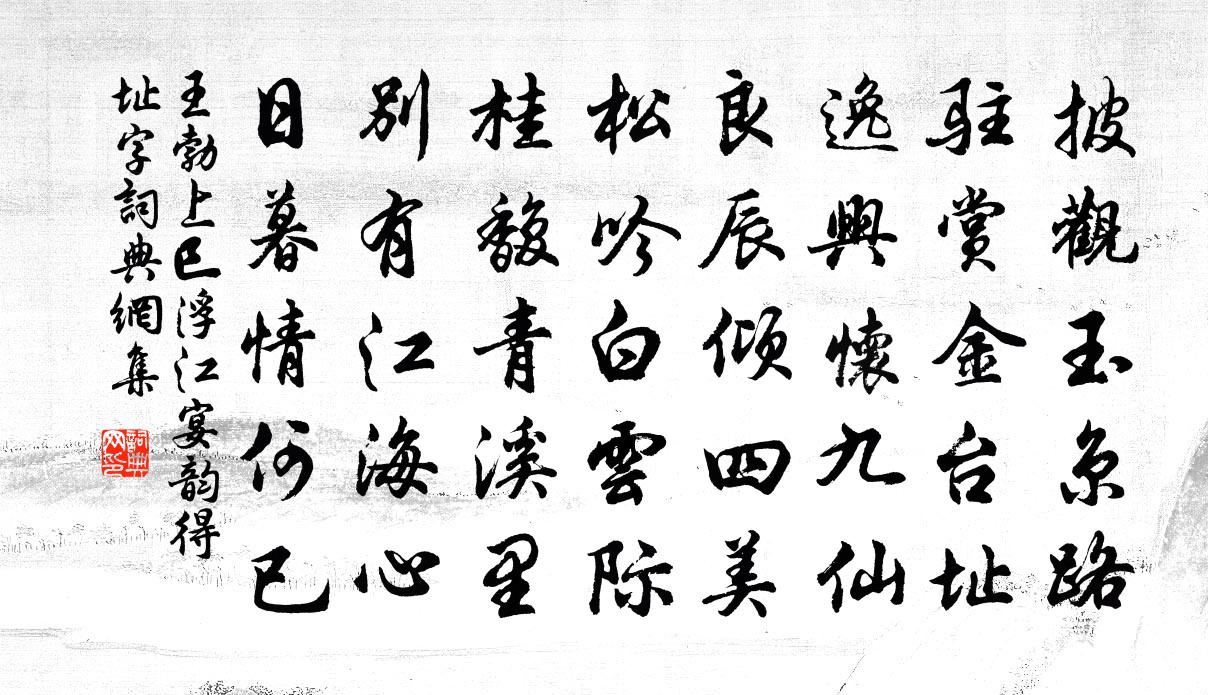 披觀玉京路
駐賞金台址
逸興懷九仙
良辰傾四美
松吟白雲際
桂馥青溪里
別有江海心
日暮情何已
王勃上巳浮江宴韵得
址字詞典網集